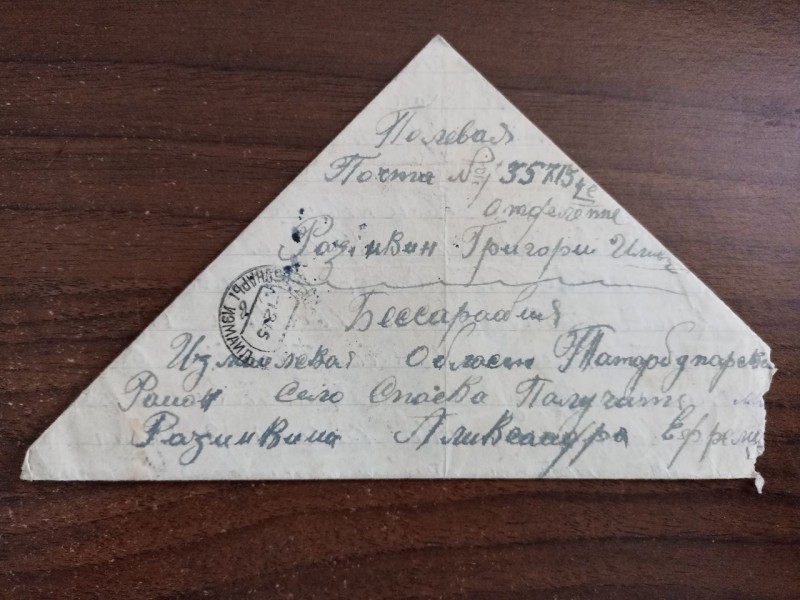 Полевая
Почта № 35715 Че
отделение
Разинкин Григори
Бессарабия
Измаилевая Област Татарбунарска
Раион Село Спаска Палучить
Разинкина Аликсандра Ефрем